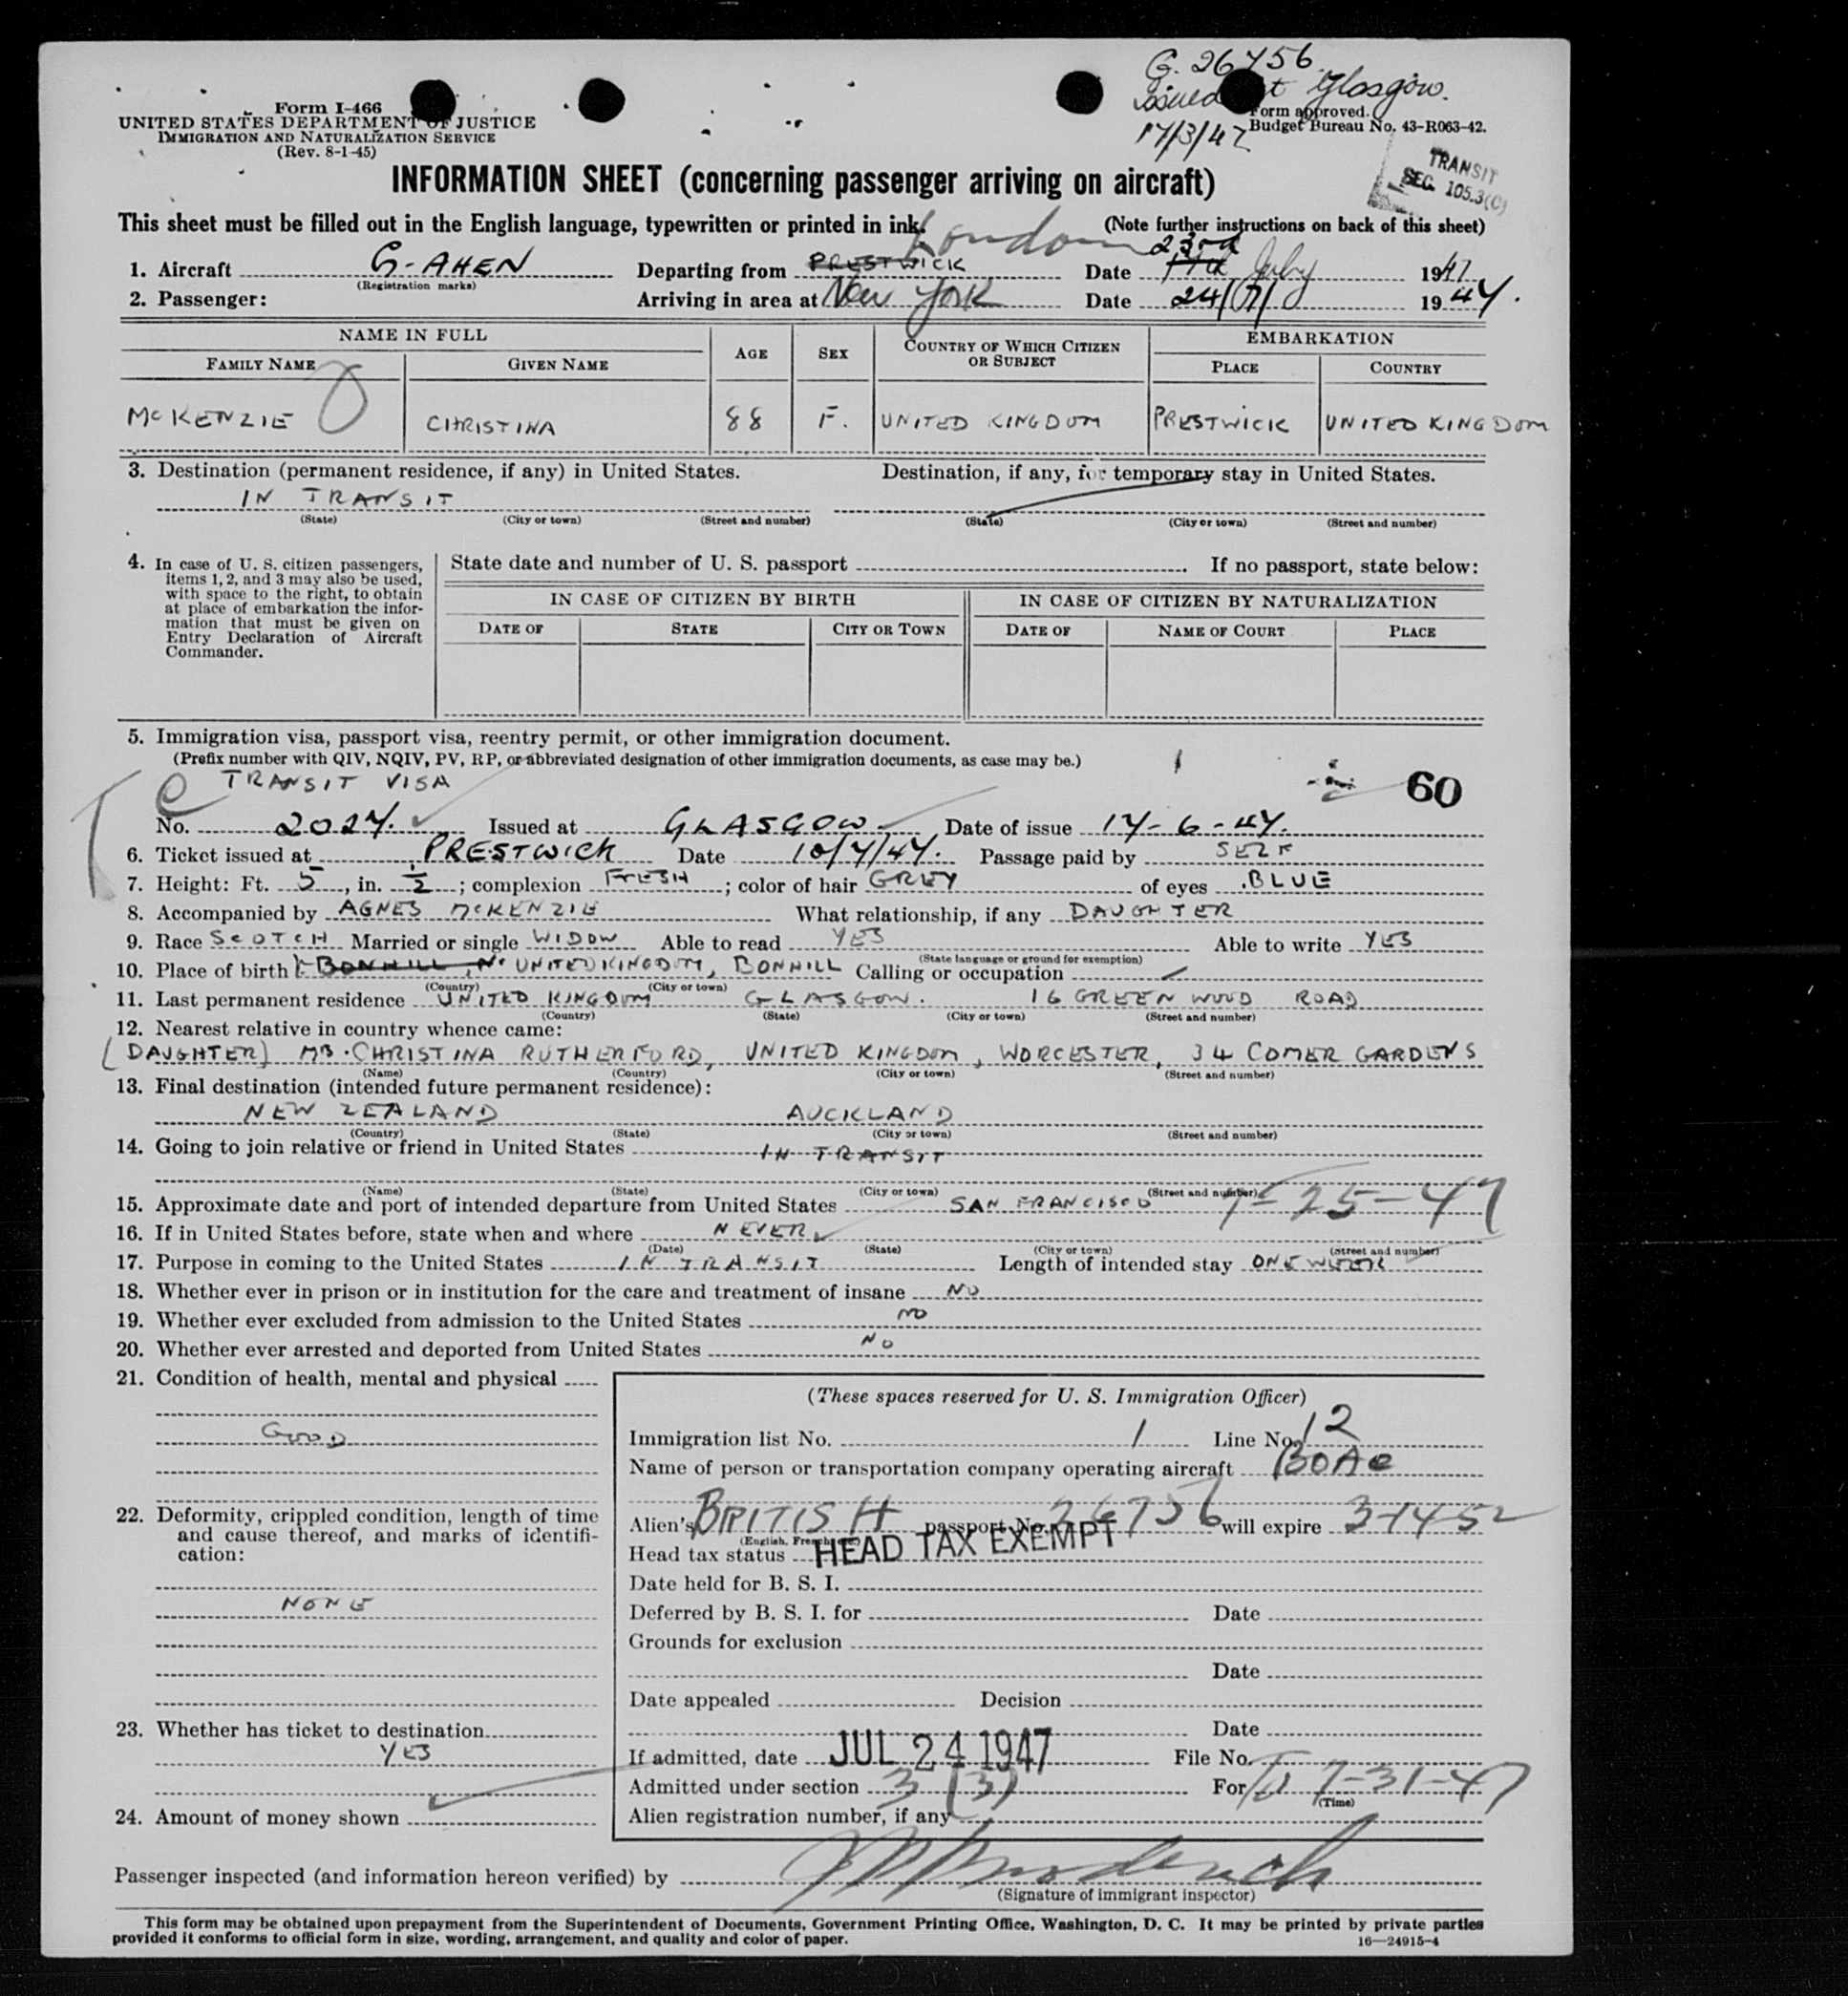 G. 26756
issued at Glasgow.
17/3/47
Form I-466
UNITED STATES DEPARTMENT OF JUSTICE
IMMIGRATION AND NATURALIZATION SERVICE
(Rev. 8-1-45)
Form approved.
Budget Bureau No. 43-R063-42.
TRANSIT
SEC. 105.3(C)
INFORMATION SHEET (concerning passenger arriving on aircraft)
This sheet must be filled out in the English language, typewritten or printed in ink. (Note further instructions on back of this sheet)
London 23rd
1. Aircraft G-AHEN Departing from PRESTWICK Date July 1947
(Registration marks)
2. Passenger: Arriving in area at New York Date 24/7/ 1947.
NAME IN FULL AGE SEX COUNTRY OF WHICH CITIZEN OR SUBJECT EMBARKATION
FAMILY NAME GIVEN NAME PLACE COUNTRY
McKENZIE CHRISTINA 88 F. UNITED KINGDOM PRESTWICK UNITED KINGDOM
3. Destination (permanent residence, if any) in United States. Destination, if any, for temporary stay in United States.
IN TRANSIT
(State) (City or town) (Street and number) (State) (City or town) (Street and number)
4. In case of U. S. citizen passengers, items 1, 2, and 3 may also be used, with space to the right, to obtain at place of embarkation the information that must be given on Entry Declaration of Aircraft Commander.
State date and number of U. S. passport If no passport, state below:
IN CASE OF CITIZEN BY BIRTH IN CASE OF CITIZEN BY NATURALIZATION
DATE OF STATE CITY OR TOWN DATE OF NAME OF COURT PLACE
5. Immigration visa, passport visa, reentry permit, or other immigration document.
(Prefix number with QIV, NQIV, PV, RP, or abbreviated designation of other immigration documents, as case may be.)
TRANSIT VISA 60
No. 2027. Issued at GLASGOW Date of issue 17-6-47.
6. Ticket issued at PRESTWICK Date 10/7/47. Passage paid by SELF
7. Height: Ft. 5, in. ½; complexion FRESH; color of hair GREY of eyes BLUE
8. Accompanied by AGNES McKENZIE What relationship, if any DAUGHTER
9. Race SCOTCH Married or single WIDOW Able to read YES Able to write YES
(State language or ground for exemption)
10. Place of birth BONHILL, UNITED KINGDOM, BONHILL Calling or occupation
(Country) (City or town)
11. Last permanent residence UNITED KINGDOM GLASGOW. 16 GREENWOOD ROAD
(Country) (State) (City or town) (Street and number)
12. Nearest relative in country whence came:
(DAUGHTER) CHRISTINA RUTHERFORD, UNITED KINGDOM, WORCESTER, 34 COMER GARDENS
(Name) (Country) (City or town) (Street and number)
13. Final destination (intended future permanent residence):
NEW ZEALAND AUCKLAND
(Country) (State) (City or town) (Street and number)
14. Going to join relative or friend in United States IN TRANSIT
(Name) (State) (City or town) (Street and number)
15. Approximate date and port of intended departure from United States SAN FRANCISCO 7-25-47
16. If in United States before, state when and where NEVER
(Date) (State) (City or town) (Street and number)
17. Purpose in coming to the United States IN TRANSIT Length of intended stay ONE WEEK
18. Whether ever in prison or in institution for the care and treatment of insane NO
19. Whether ever excluded from admission to the United States NO
20. Whether ever arrested and deported from United States NO
21. Condition of health, mental and physical
GOOD
22. Deformity, crippled condition, length of time and cause thereof, and marks of identification:
NONE
23. Whether has ticket to destination
YES
24. Amount of money shown
(These spaces reserved for U. S. Immigration Officer)
Immigration list No. 1 Line No. 12
Name of person or transportation company operating aircraft BOAC
Alien's BRITISH passport No. 26756 will expire 3-17-52
(English, French, etc.)
Head tax status HEAD TAX EXEMPT
Date held for B. S. I.
Deferred by B. S. I. for Date
Grounds for exclusion
Date
Date appealed Decision
Date
If admitted, date JUL 24 1947 File No.
Admitted under section 3 (3) For 7-31-47
(Time)
Alien registration number, if any
Passenger inspected (and information hereon verified) by
(Signature of immigrant inspector)
This form may be obtained upon prepayment from the Superintendent of Documents, Government Printing Office, Washington, D. C. It may be printed by private parties
provided it conforms to official form in size, wording, arrangement, and quality and color of paper.
16—24915-4